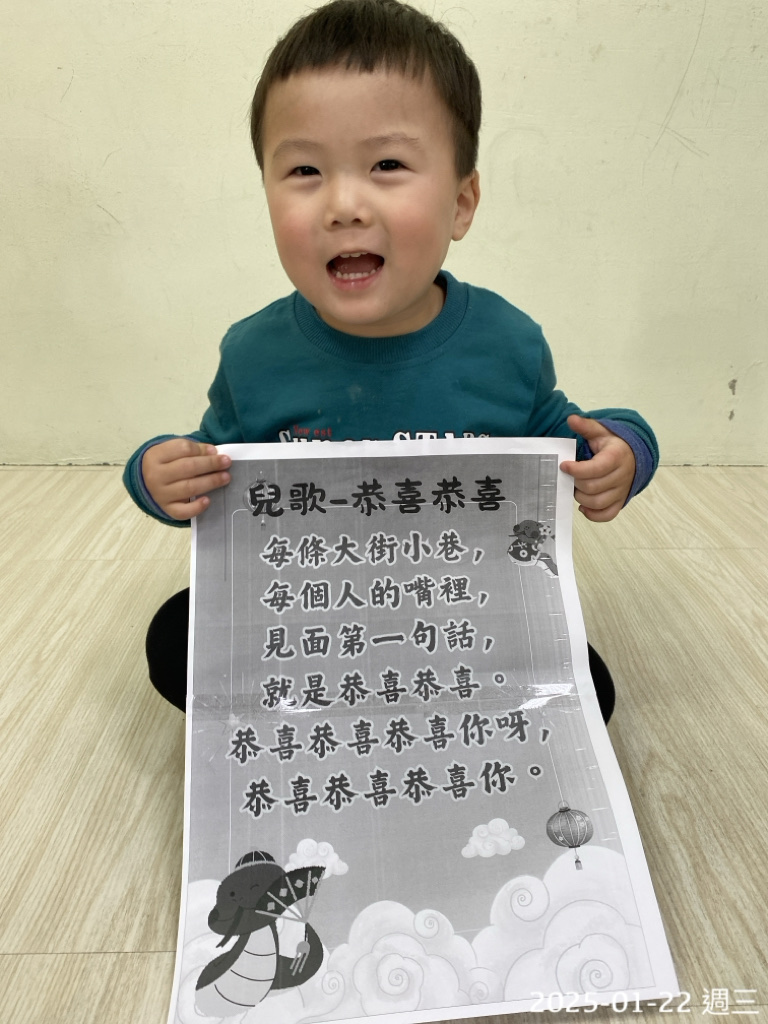 兒歌-恭喜恭喜
每條大街小巷，
每個人的嘴裡，
見面第一句話，
就是恭喜恭喜。
恭喜恭喜恭喜你呀，
恭喜恭喜恭喜你。
2025-01-22 週三